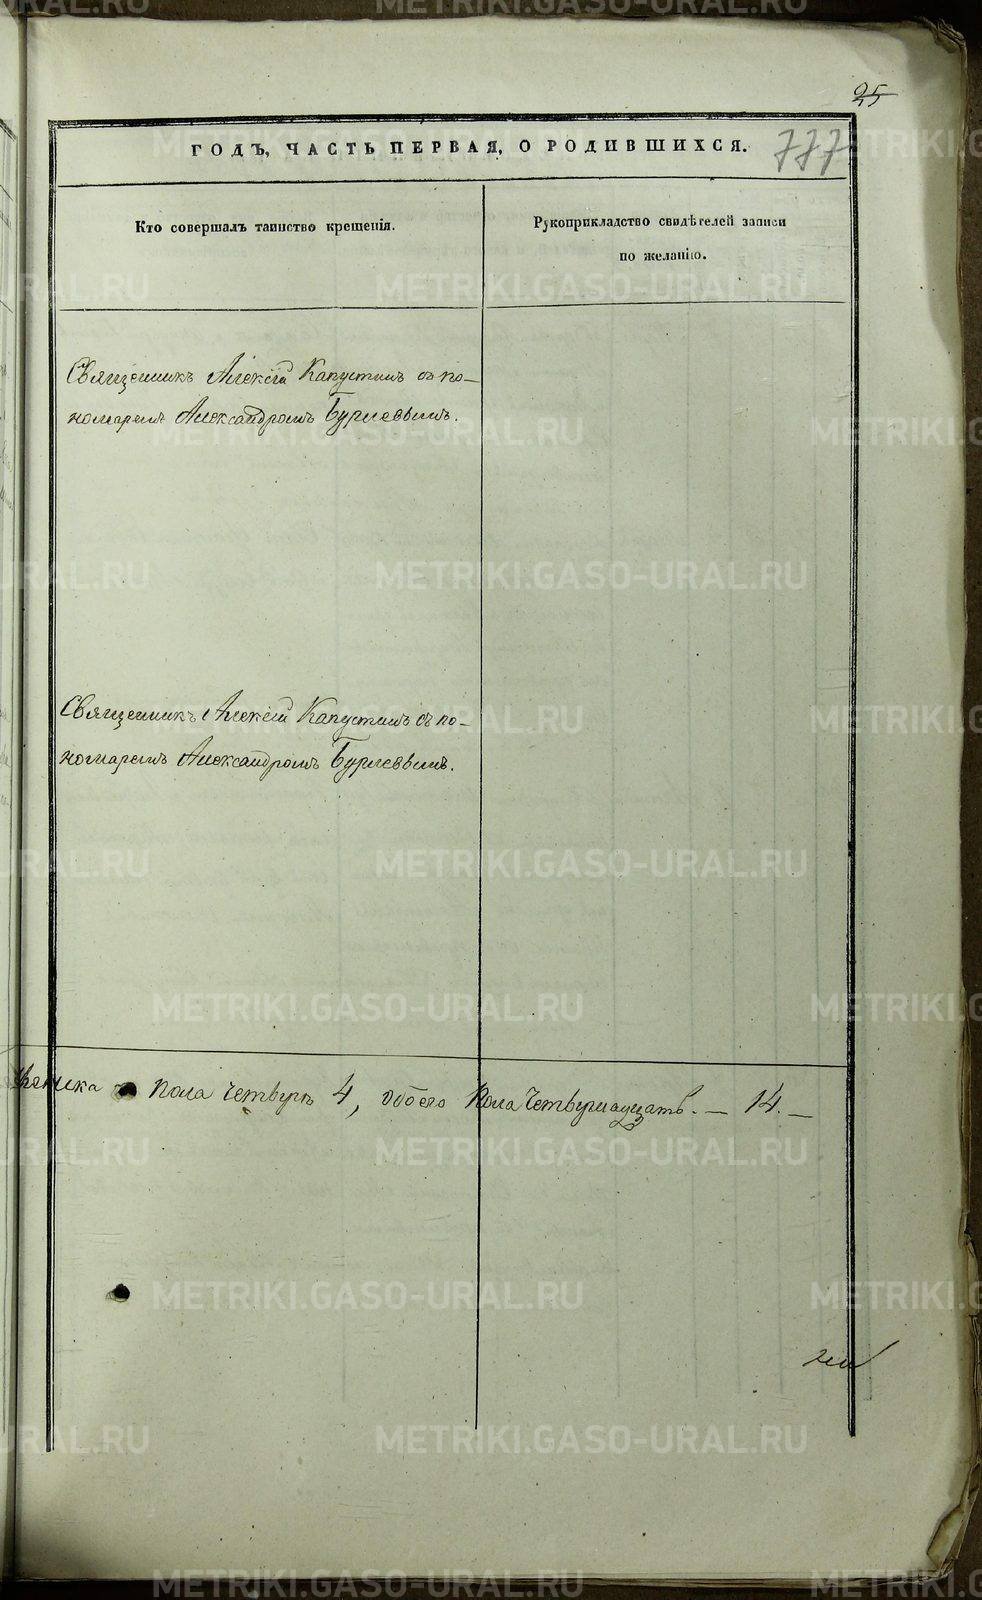 25
ГОДЪ, ЧАСТЬ ПЕРВАЯ, О РОДИВШИХСЯ. 777
Кто совершалъ таинство крещенія.
Рукоприкладство свидѣтелей записи
по желанію.
Священникъ Алексій Капустинъ съ по-
номаремъ Александромъ Бурлеввымъ.
Священникъ Алексій Капустинъ съ по-
номаремъ Александромъ Бурлеввымъ.
Женска пола четверо 4, обоего пола четырнадцать. — 14. —
METRIKI.GASO-URAL.RU